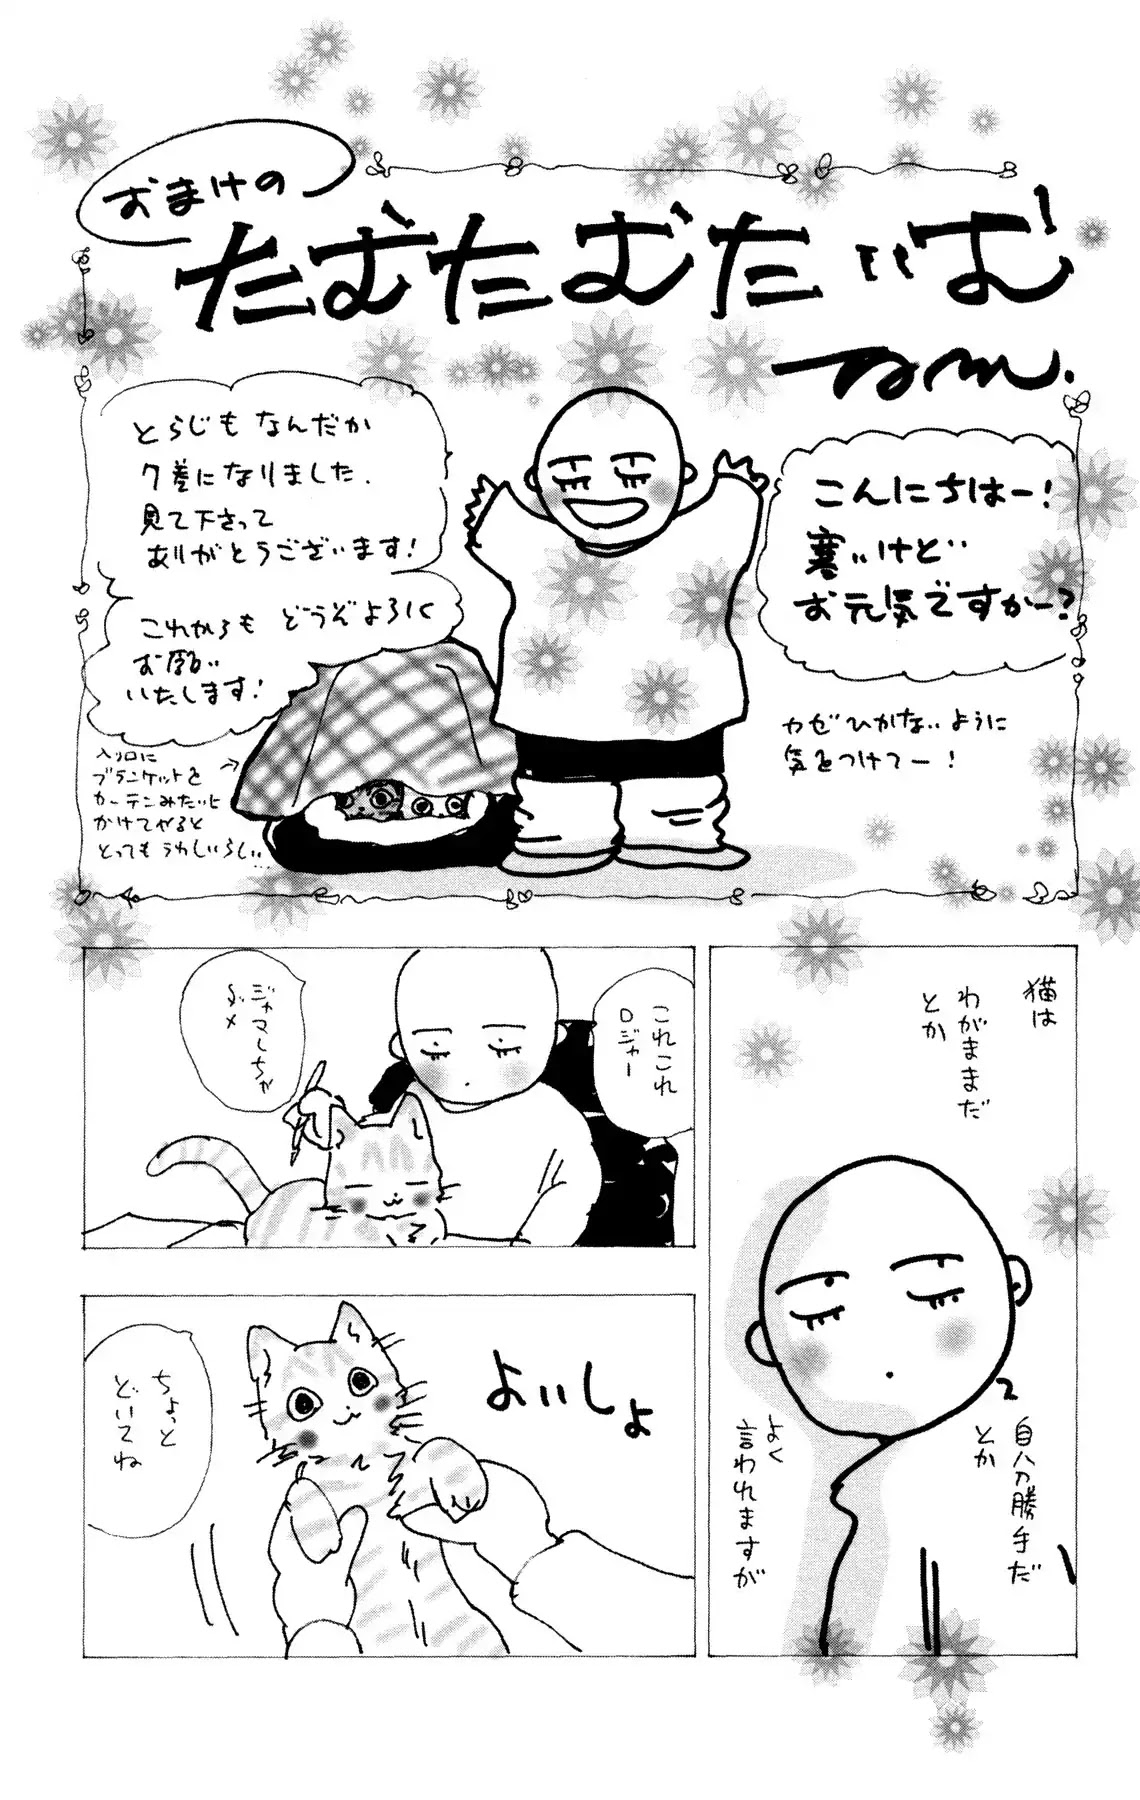 おまけの
たむたむたいむ
こんにちはー!
寒いけど
お元気ですかー?
カゼひかないように
気をつけてー!
とらじも なんだか
7巻になりました.
見て下さって
ありがとうございます!
これからも どうぞよろしく
お願い
いたします!
入り口に
ブランケットを
カーテンみたいに
かけてやると
とっても うれしいらしい…
猫は
わがままだ
とか
自分勝手だ
とか
よく
言われますが
これこれ
ロジャー
ジャマしちゃ
ダメ
よいしょ
ちょっと
どいてね